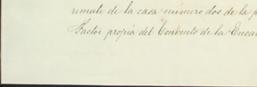 remate de la casa número dos de la p
Factor propia del Convento de la Encar